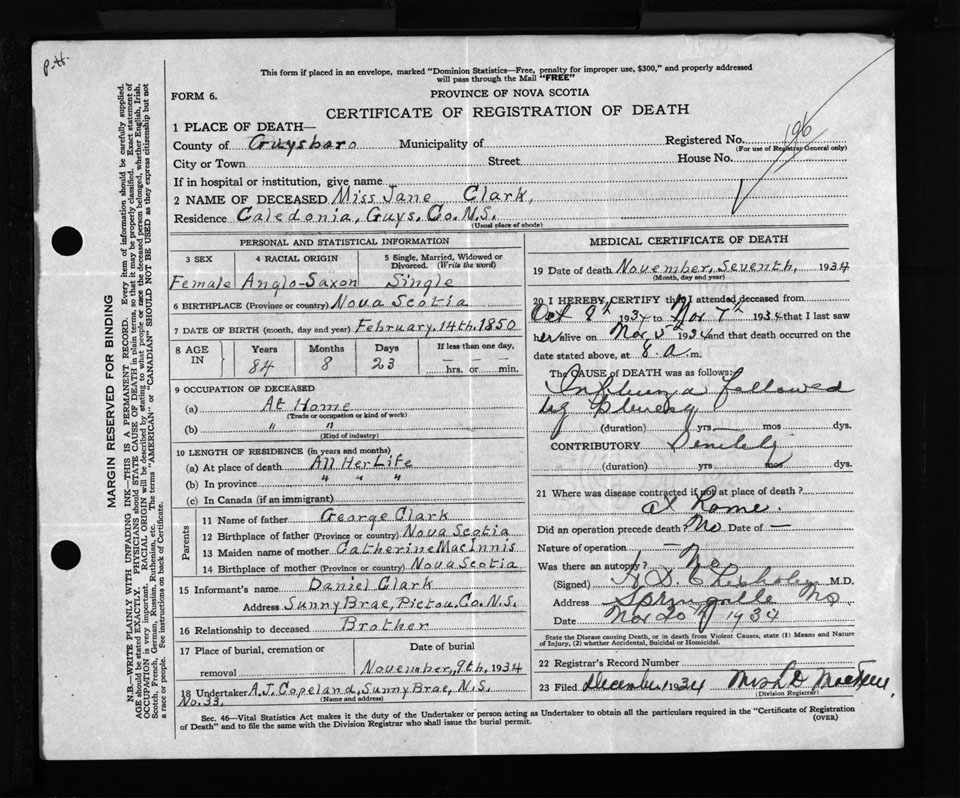 P.H.
This form if placed in an envelope, marked "Dominion Statistics—Free, penalty for improper use, $300," and properly addressed
will pass through the Mail "FREE"
FORM 6.
PROVINCE OF NOVA SCOTIA
CERTIFICATE OF REGISTRATION OF DEATH
1 PLACE OF DEATH—
Registered No. 196
(For use of Registrar General only)
County of Guysboro Municipality of
City or Town Street House No.
If in hospital or institution, give name
2 NAME OF DECEASED Miss Jane Clark,
Residence Caledonia, Guys. Co. N.S.
(Usual place of abode)
PERSONAL AND STATISTICAL INFORMATION
3 SEX 4 RACIAL ORIGIN 5 Single, Married, Widowed or
Divorced. (Write the word)
Female Anglo-Saxon Single
6 BIRTHPLACE (Province or country) Nova Scotia
7 DATE OF BIRTH (month, day and year) February, 14th, 1850
8 AGE IN Years Months Days If less than one day,
84 8 23 — — — hrs. or — — min.
9 OCCUPATION OF DECEASED
(a) At Home
(Trade or occupation or kind of work)
(b) " "
(Kind of industry)
10 LENGTH OF RESIDENCE (in years and months)
(a) At place of death All Her Life
(b) In province " " "
(c) In Canada (if an immigrant)
Parents
11 Name of father George Clark
12 Birthplace of father (Province or country) Nova Scotia
13 Maiden name of mother Catherine MacInnis
14 Birthplace of mother (Province or country) Nova Scotia
15 Informant's name Daniel Clark
Address Sunny Brae, Pictou, Co. N.S.
16 Relationship to deceased Brother
17 Place of burial, cremation or Date of burial
removal November, 9th, 1934
18 Undertaker A.J. Copeland, Sunny Brae, N.S.
(Name and address)
No. 33.
MEDICAL CERTIFICATE OF DEATH
19 Date of death November, Seventh, 1934
(Month, day and year)
20 I HEREBY CERTIFY that I attended deceased from
Oct 8th 1934 to Nov 7th 1934 that I last saw
her alive on Nov 5th 1934 and that death occurred on the
date stated above, at 8. a. m.
The CAUSE OF DEATH was as follows:
Influenza followed
by pleurisy
(duration) yrs — mos dys.
CONTRIBUTORY Senility
(duration) yrs mos dys.
21 Where was disease contracted if not at place of death?
at home.
Did an operation precede death? No Date of —
Nature of operation —
Was there an autopsy? No
(Signed) H. D. Chisholm M.D.
Address Springville
Date Nov 20th 1934
State the Disease causing Death, or in death from Violent Causes, state (1) Means and Nature
of Injury, (2) whether Accidental, Suicidal or Homicidal.
22 Registrar's Record Number
23 Filed December 1934 Mrs L D
(Division Registrar)
Sec. 46—Vital Statistics Act makes it the duty of the Undertaker or person acting as Undertaker to obtain all the particulars required in the "Certificate of Registration
of Death" and to file the same with the Division Registrar who shall issue the burial permit.
(OVER)
MARGIN RESERVED FOR BINDING
N.B.—WRITE PLAINLY WITH UNFADING INK—THIS IS A PERMANENT RECORD. Every item of information should be carefully supplied.
AGE should be stated EXACTLY. PHYSICIANS should STATE CAUSE OF DEATH in plain terms, so that it may be properly classified. Exact statement of
OCCUPATION is very important. RACIAL ORIGIN will be described by stating to what people or race the deceased person belonged, whether English, Irish,
Scotch, French, German, Russian, Ruthenian, etc. The terms "AMERICAN" or "CANADIAN" SHOULD NOT BE USED as they express citizenship but not
a race or people. See instructions on back of Certificate.